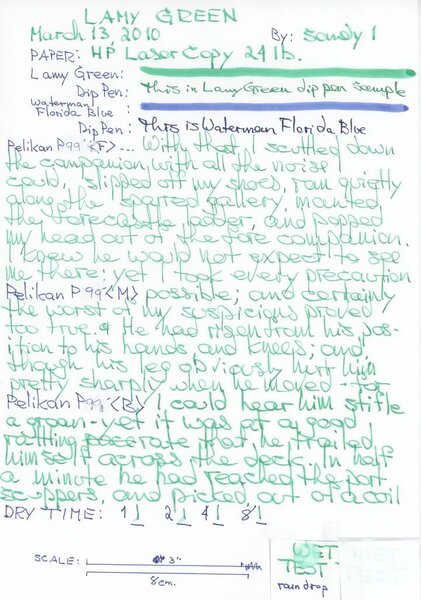 LAMY GREEN
March 13, 2010 By: Sandy 1
PAPER: HP LaserCopy 24 lb.
Lamy Green:
Dip Pen: This in Lamy Green dip pen sample
Waterman Florida Blue :
Dip Pen: This is Waterman Florida Blue
Pelikan P99 <F> ... With that I scuttled down
the companion with all the noise I
could, slipped off my shoes, ran quietly
along the sparred gallery, mounted
the forecastle ladder, and popped
my head out of the fore companion.
I knew he would not expect to see
me there; yet I took every precaution
Pelikan P99 <M> possible; and certainly
the worst of my suspicions proved
too true. ¶ He had risen from his pos-
ition to his hands and knees; and
though his leg obviously hurt him
pretty sharply when he moved - for
Pelikan P99 <B> I could hear him stifle
a groan - yet it was at a good
rattling rate that he trailed
himself across the deck. In half
a minute he had reached the port
scuppers, and picked, out of a coil
DRY TIME: 1 | 2 | 4 | 8 |
WET
TEST
raindrop
SCALE: 3"
8cm.